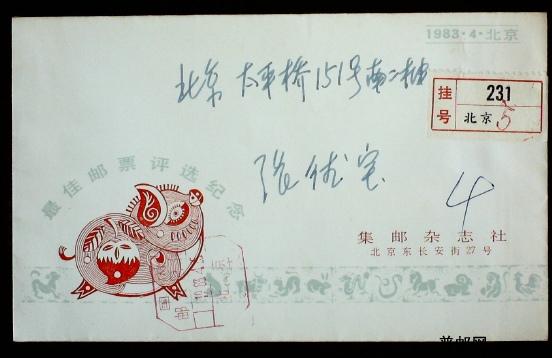 1983·4·北京
北京 太平桥151号南二楼
挂号
231
北京 5
张
4
最佳邮票评选纪念
集邮杂志社
北京东长安街27号